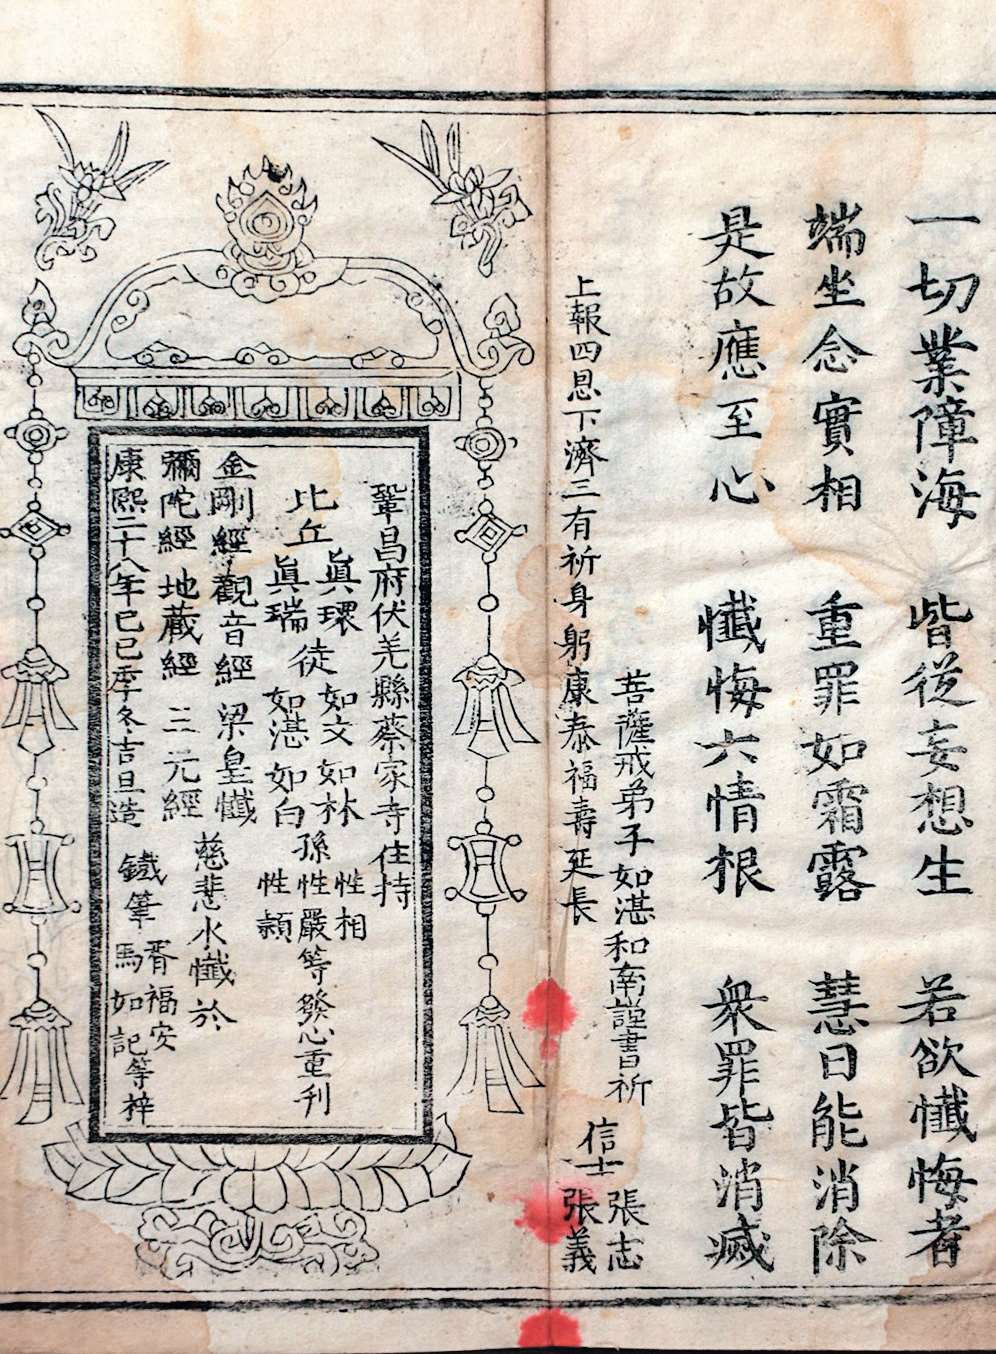 一切業障海 皆從妄想生 若欲懺悔者
端坐念實相 重罪如霜露 慧日能消除
是故應至心 懺悔六情根 衆罪皆消滅
菩薩戒弟子如湛和南謹書祈 信士 張志 張義
上報四恩下濟三有祈身躬康泰福壽延長
鞏昌府伏羌縣蔡家寺住持
比丘 眞環 眞瑞 徒 如文 如林 如湛 如白 孫 性相 性嚴 性頴 等發心重刋
金剛經 觀音經 梁皇懺 慈悲水懺 於
彌陀經 地藏經 三元經
康熙二十八年己巳季冬吉旦造 鐵筆 胥福安 馬如記 等梓